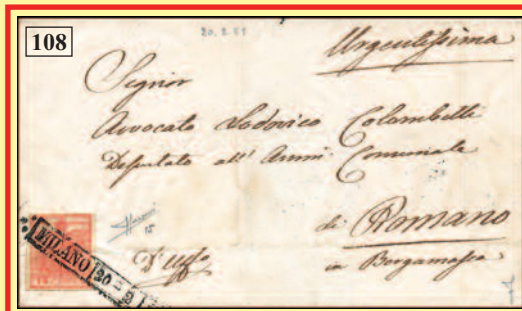 108
20. 2. 51
Urgentissima
Signor
Avvocato Lodovico Colombelli
Deputato all' Ammi. Comunale
di Romano
15
D'Uffo
in Bergamasca
MILANO 20